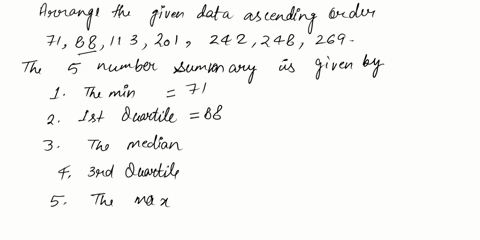 Arrange the given data ascending order
71, 88, 113, 201, 242, 248, 269.
The 5 number summary is given by
1. The min = 71
2. 1st Quartile = 88
3. The median
4. 3rd Quartile
5. The max